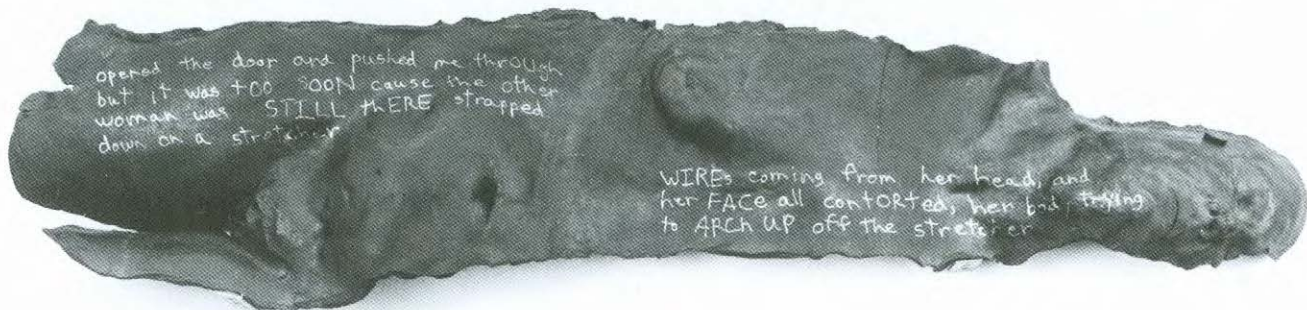 opened the door and pushed me thrOUgh
but it was tOO SOON cause the other
woman was STILL tHERE strapped
down on a stretcher
WIREs coming from her head, and
her FACe all contORted, her body trying
to ARCh UP off the stretcher